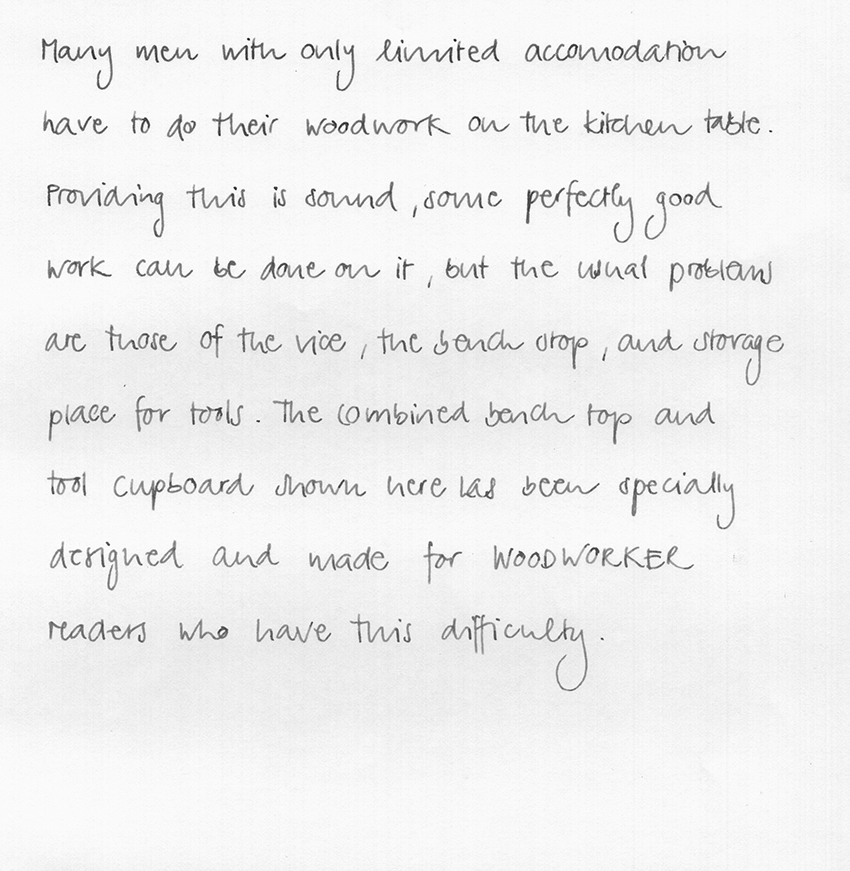 Many men with only limited accomodation
have to do their woodwork on the kitchen table.
Providing this is sound, some perfectly good
work can be done on it, but the usual problems
are those of the vice, the bench stop, and storage
place for tools. The combined bench top and
tool cupboard shown here has been specially
designed and made for WOODWORKER
readers who have this difficulty.